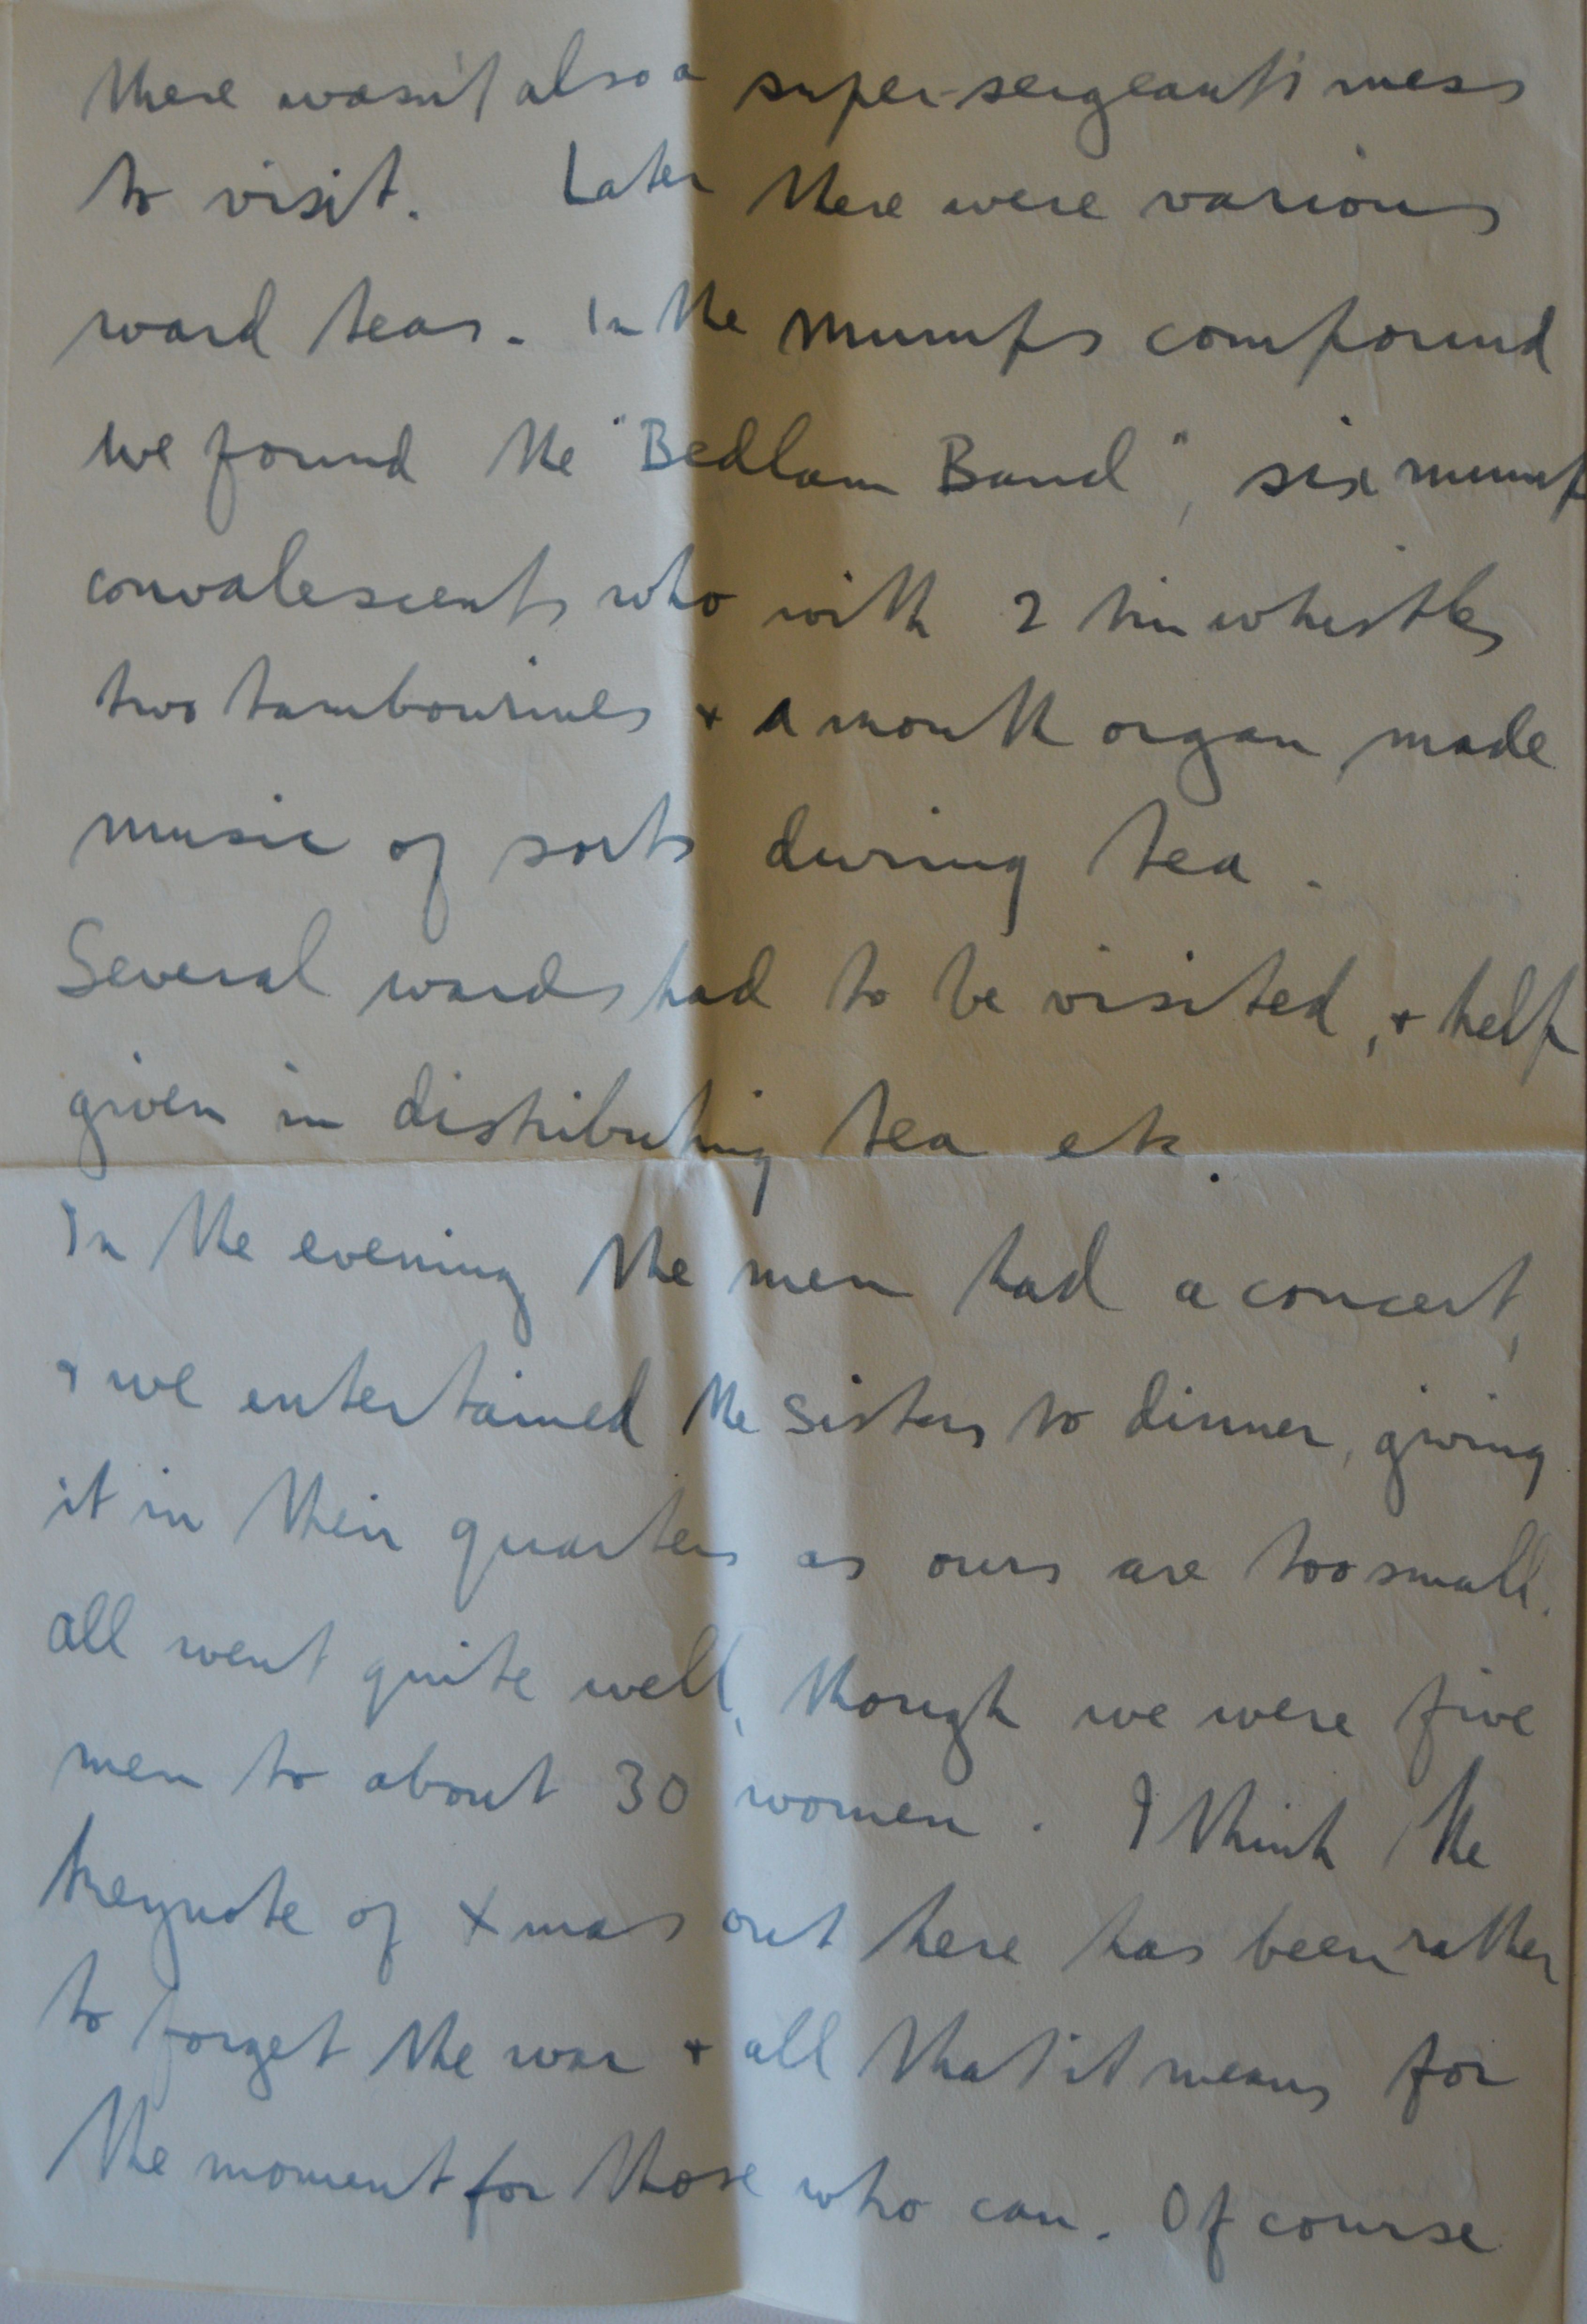 there wasn't also a super-sergeants' mess
to visit. Later there were various
ward teas. In the mumps compound
we found the "Bedlam Band", six mump
convalescents who with 2 tin whistles
two tambourines + a mouth organ, made
music of sorts during tea.
Several wards had to be visited, + help
given in distributing tea etc.
In the evening the men had a concert,
+ we entertained the sisters to dinner, giving
it in their quarters as ours are too small.
All went quite well, though we were five
men to about 30 women. I think the
keynote of Xmas out here has been rather
to forget the war + all that it means for
the moment for those who can. Of course